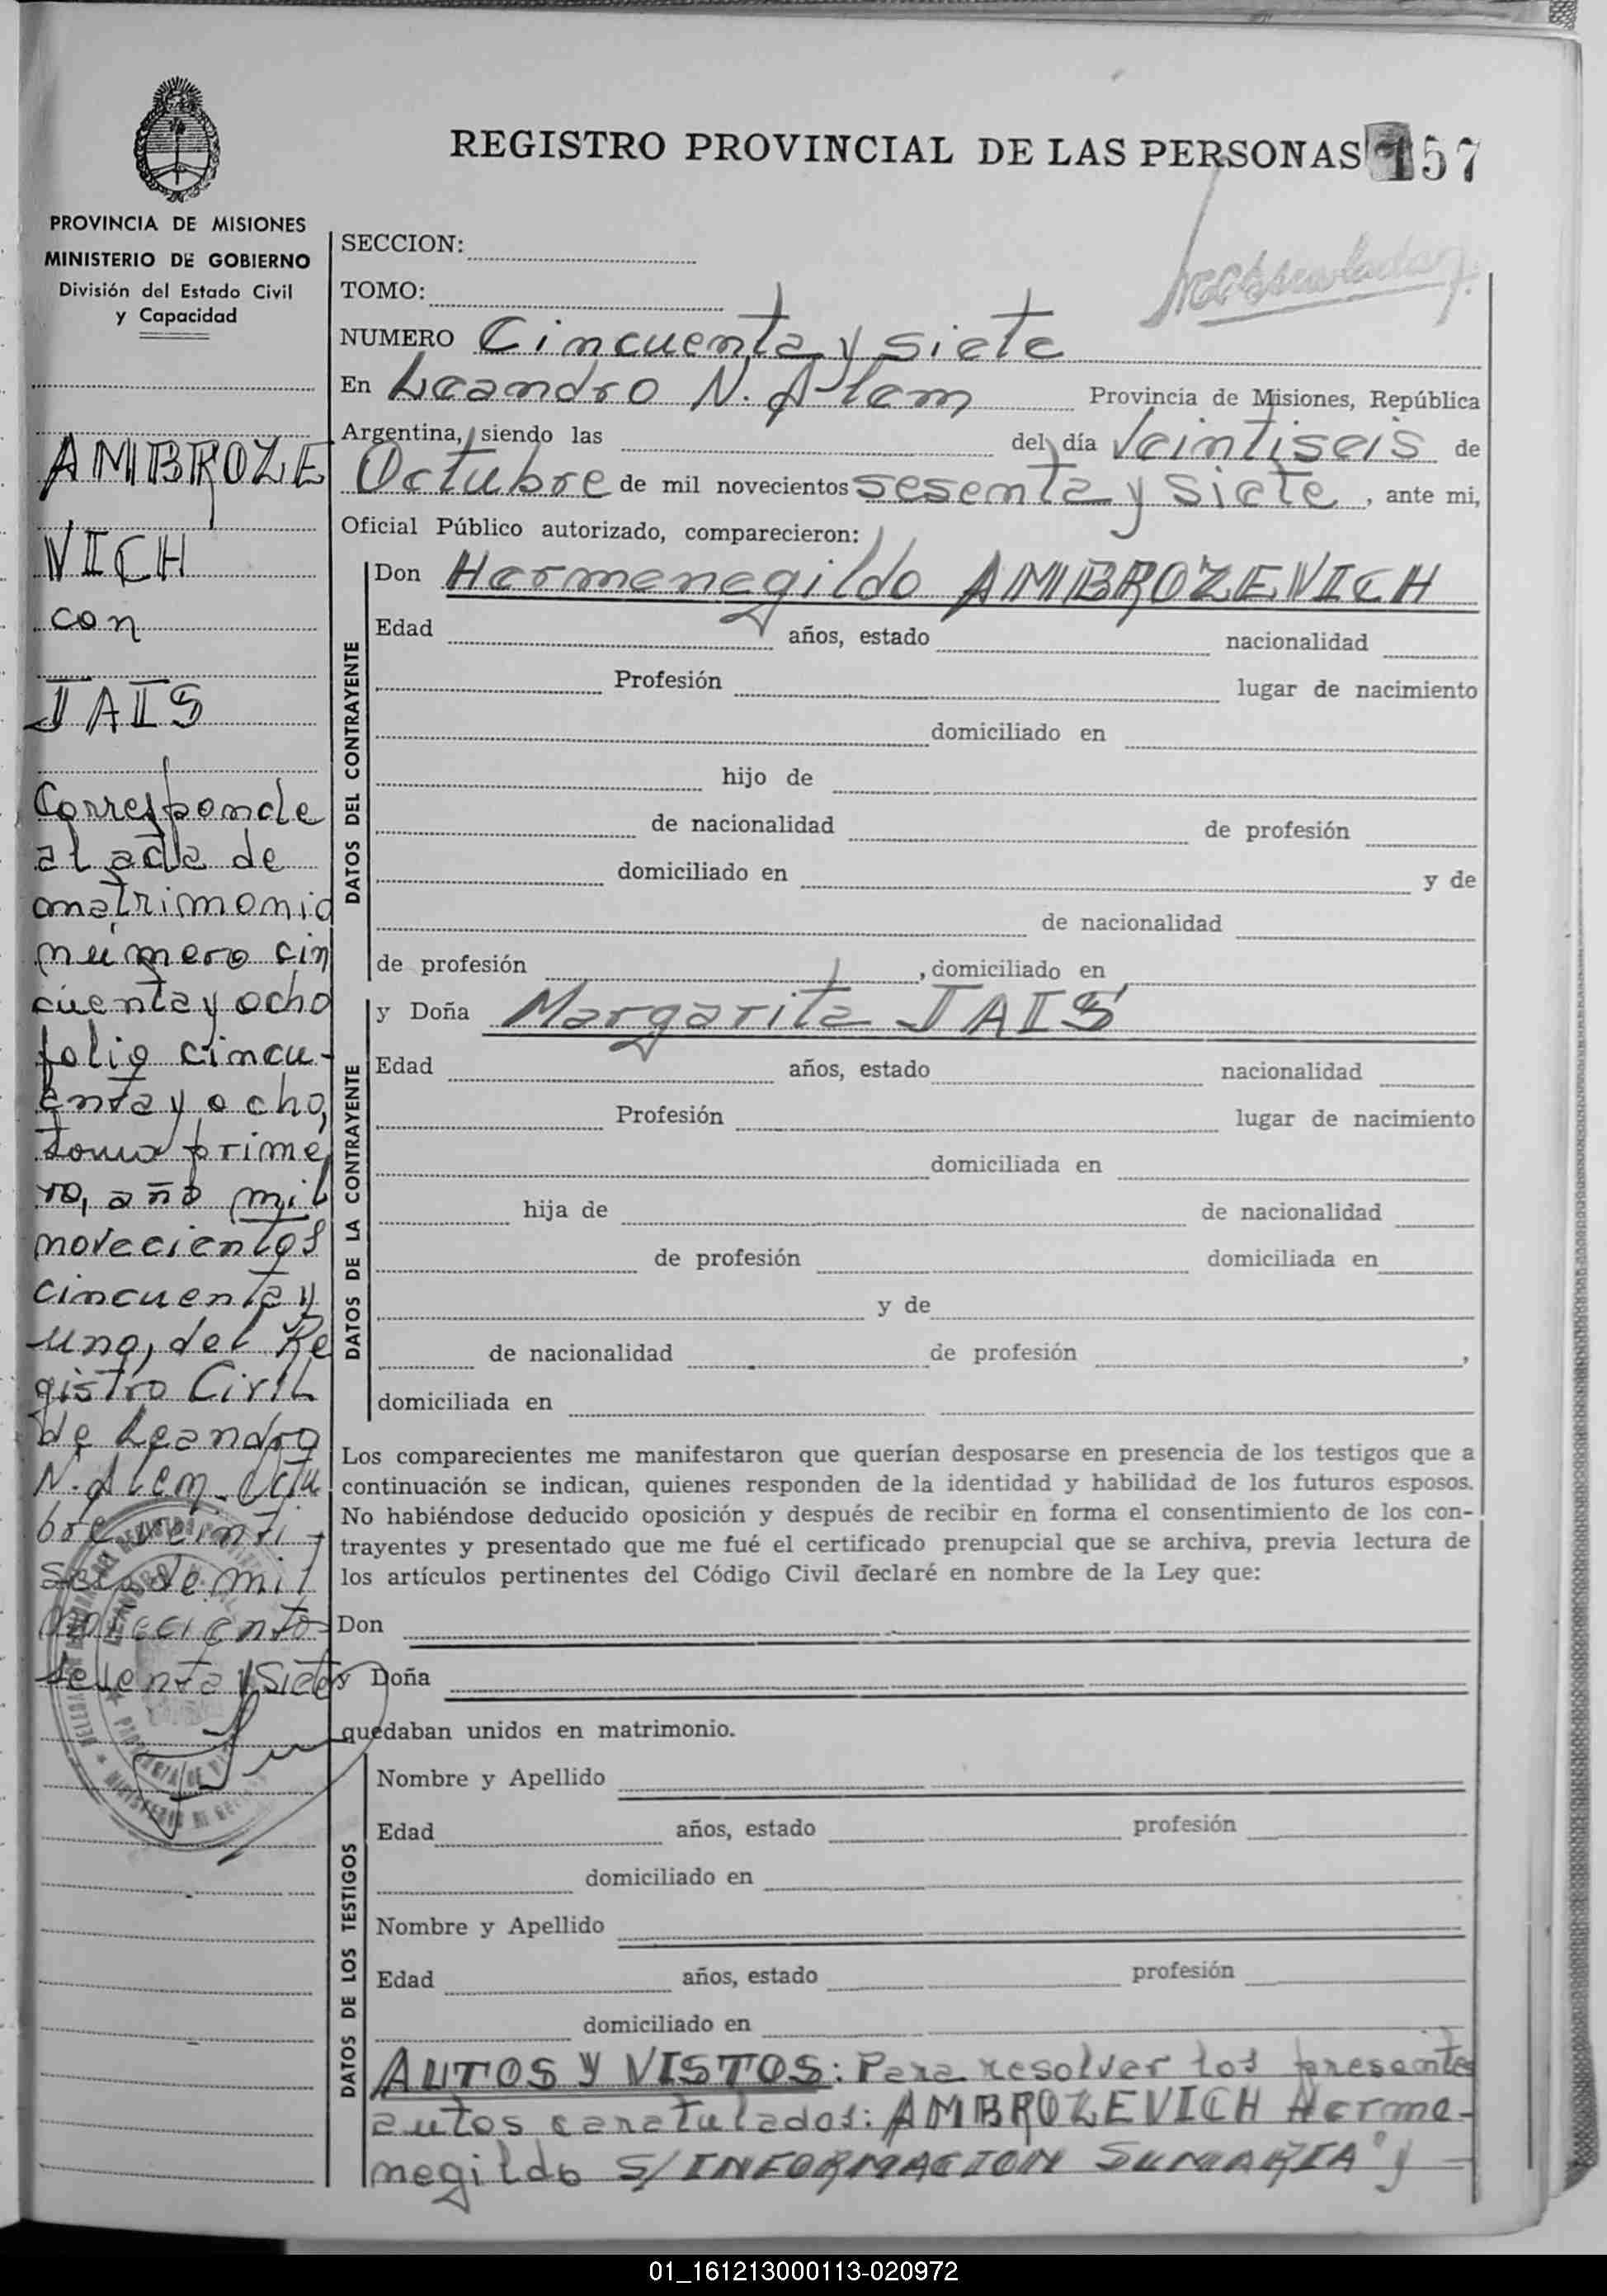 REGISTRO PROVINCIAL DE LAS PERSONAS 157
PROVINCIA DE MISIONES
MINISTERIO DE GOBIERNO
División del Estado Civil
y Capacidad
AMBROZE
VICH
con
JAIS
Corresponde
al acta de
matrimonio
número cin
cuenta y ocho
folio cincu-
enta y ocho,
tomo prime
ro, año mil
novecientos
cincuenta y
uno, del Re
gistro Civil
de Leandro
N. Alem. Octu
bre veinti
seis de mil
novecientos
sesenta y siete
SECCION:
TOMO:
NUMERO Cincuenta y siete
En Leandro N. Alem Provincia de Misiones, República
Argentina, siendo las del día Veintiseis de
Octubre de mil novecientos sesenta y siete, ante mi,
Oficial Público autorizado, comparecieron:
DATOS DEL CONTRAYENTE
Don Hermenegildo AMBROZEVICH
Edad años, estado nacionalidad
Profesión lugar de nacimiento
domiciliado en
hijo de
de nacionalidad de profesión
domiciliado en y de
de nacionalidad
de profesión , domiciliado en
DATOS DE LA CONTRAYENTE
y Doña Margarita JAIS
Edad años, estado nacionalidad
Profesión lugar de nacimiento
domiciliada en
hija de de nacionalidad
de profesión domiciliada en
y de
de nacionalidad de profesión ,
domiciliada en
Los comparecientes me manifestaron que querían desposarse en presencia de los testigos que a
continuación se indican, quienes responden de la identidad y habilidad de los futuros esposos.
No habiéndose deducido oposición y después de recibir en forma el consentimiento de los con-
trayentes y presentado que me fué el certificado prenupcial que se archiva, previa lectura de
los artículos pertinentes del Código Civil declaré en nombre de la Ley que:
Don
y Doña
quedaban unidos en matrimonio.
DATOS DE LOS TESTIGOS
Nombre y Apellido
Edad años, estado profesión
domiciliado en
Nombre y Apellido
Edad años, estado profesión
domiciliado en
AUTOS Y VISTOS: Para resolver los presentes
autos caratulados: AMBROZEVICH Herme-
negildo S/INFORMACION SUMARIA" y
01_161213000113-020972